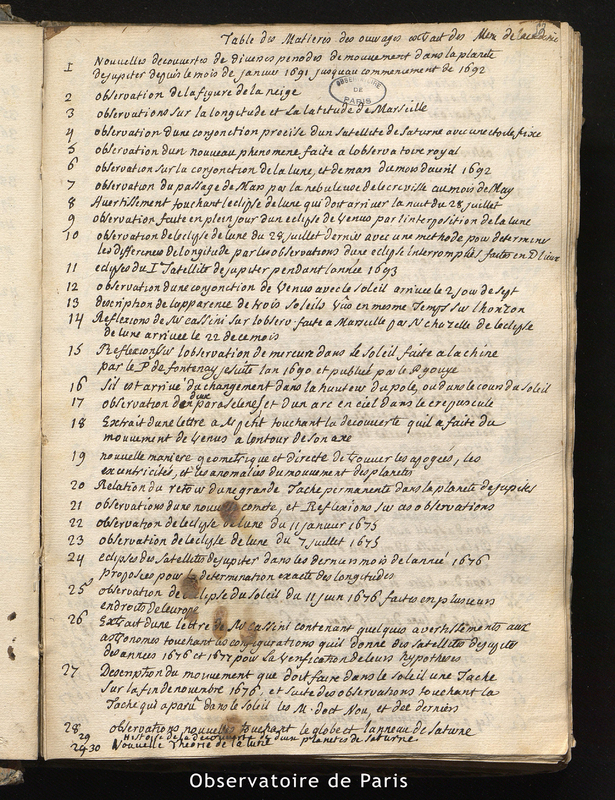 Table des Matieres des ouvrages extrait des Mem de lacademie
1 Nouvelles decouvertes de diverses periodes de mouvement dans la planete
de jupiter depuis le mois de janvier 1691 jusquau commencement de 1692
OBSERVATOIRE DE PARIS
2 observation de la figure de la neige
3 observations sur la longitude et la latitude de Marseille
4 observation dune conjonction precise dun satellite de saturne avec une etoile fixe
5 observation dun nouveau phenomene faite a lobservatoire royal
6 observation sur la conjonction de la lune, et de mars du mois davril 1692
7 observation du passage de Mars par la nebuleuse de lecrevisse au mois de May
8 Avertissement touchant leclipse de lune qui doit arriver la nuit du 28 juillet
9 observation faite en plein jour dun eclipse de Venus par linterposition de la lune
10 observation de leclipse de lune du 28 juillet dernier avec une methode pour determiner
les differences de longitude par les observations dune eclipse interrompues faites en D lieux
11 eclipses du I Satellite de jupiter pendant lannee 1693
12 observation dune conjonction de Venus avec le soleil arrivee le 2 jour de sept
13 description de lapparence de trois soleils vûs en mesme Temps sur lhorizon
14 Reflexions de Mr cassini sur lobserv faite a Marseille par Mr chazelle de leclipse
de lune arrivee le 22 de ce mois
15 Reflexions sur lobservation de mercure dans le soleil faite a la chine
par le P de fontenay jesuite lan 1690 et publiee par le P gouye
16 Sil est arrivé du changement dans la hauteur du pole, ou dans le cours du soleil
17 observation de deux paraselenes et dun arc en ciel dans le crepuscule
18 Extrait dune lettre a Mr petit touchant la decouverte quil a faite du
mouvement de Venus a lentour de son axe
19 nouvelle maniere geometrique et directe de trouver les apogées, les
excentricités, et les anomalies du mouvement des planetes
20 Relation du retour dune grande Tache permanente dans la planete de jupiter
21 observations dune nouvelle comete, et Reflexions sur ces observations
22 observation de leclipse de lune du 11 janvier 1675
23 observation de leclipse de lune du 7 juillet 1675
24 eclipses des satellites de jupiter dans les derniers mois de lanneé 1676
proposees pour la determination exacte des longitudes
25 observation de leclipse du soleil du 11 juin 1676 faites en plusieurs
endroits de leurope
26 Extrait dune lettre de Mr cassini contenant quelques avertissements aux
astronomes touchant les configurations quil donne des satellites de jupiter
des annees 1676 et 1677 pour la verification de leurs hypotheses
27 Description du mouvement que doit faire dans le soleil une Tache
sur la fin de novembre 1676, et suite des observations touchant la
Tache qui a paru dans le soleil les M. doct Nov, et dec derniers
28 observations nouvelles touchant le globe et lanneau de saturne
29 Histoire de la decouverte de deux planetes de saturne
29.30 Nouvelle Theorie de la lune
Observatoire de Paris